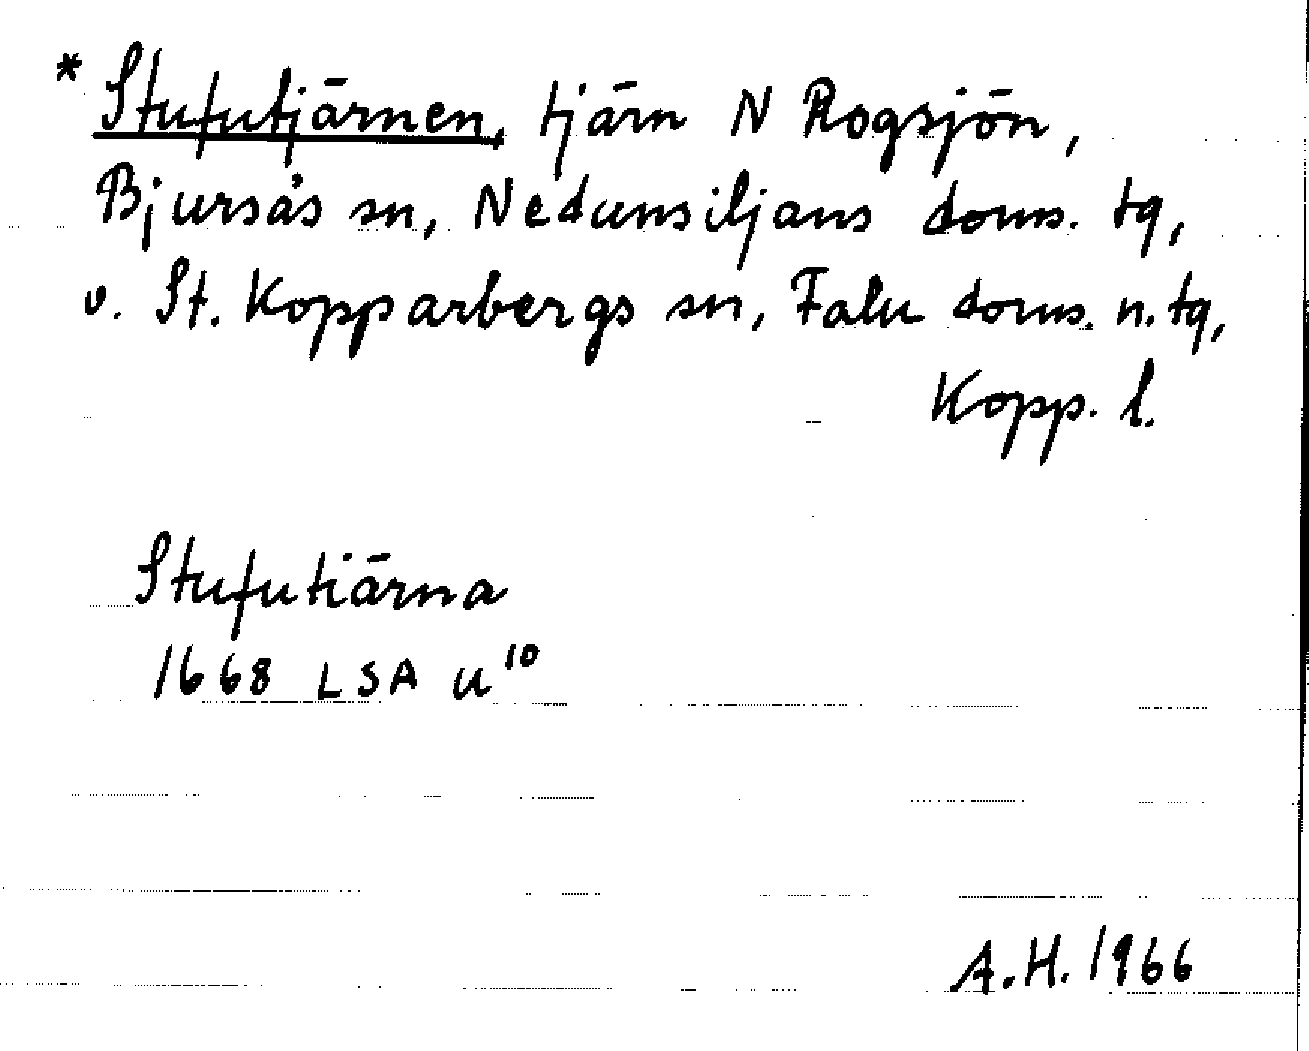 * Stufutjärnen, tjärn N Rogsjön,
Bjursås sn, Nedansiljans doms. tg,
v. St. Kopparbergs sn, Falu doms. n. tg,
Kopp. l.
Stufutiärna
1668 LSA u¹⁰
A.H. 1966